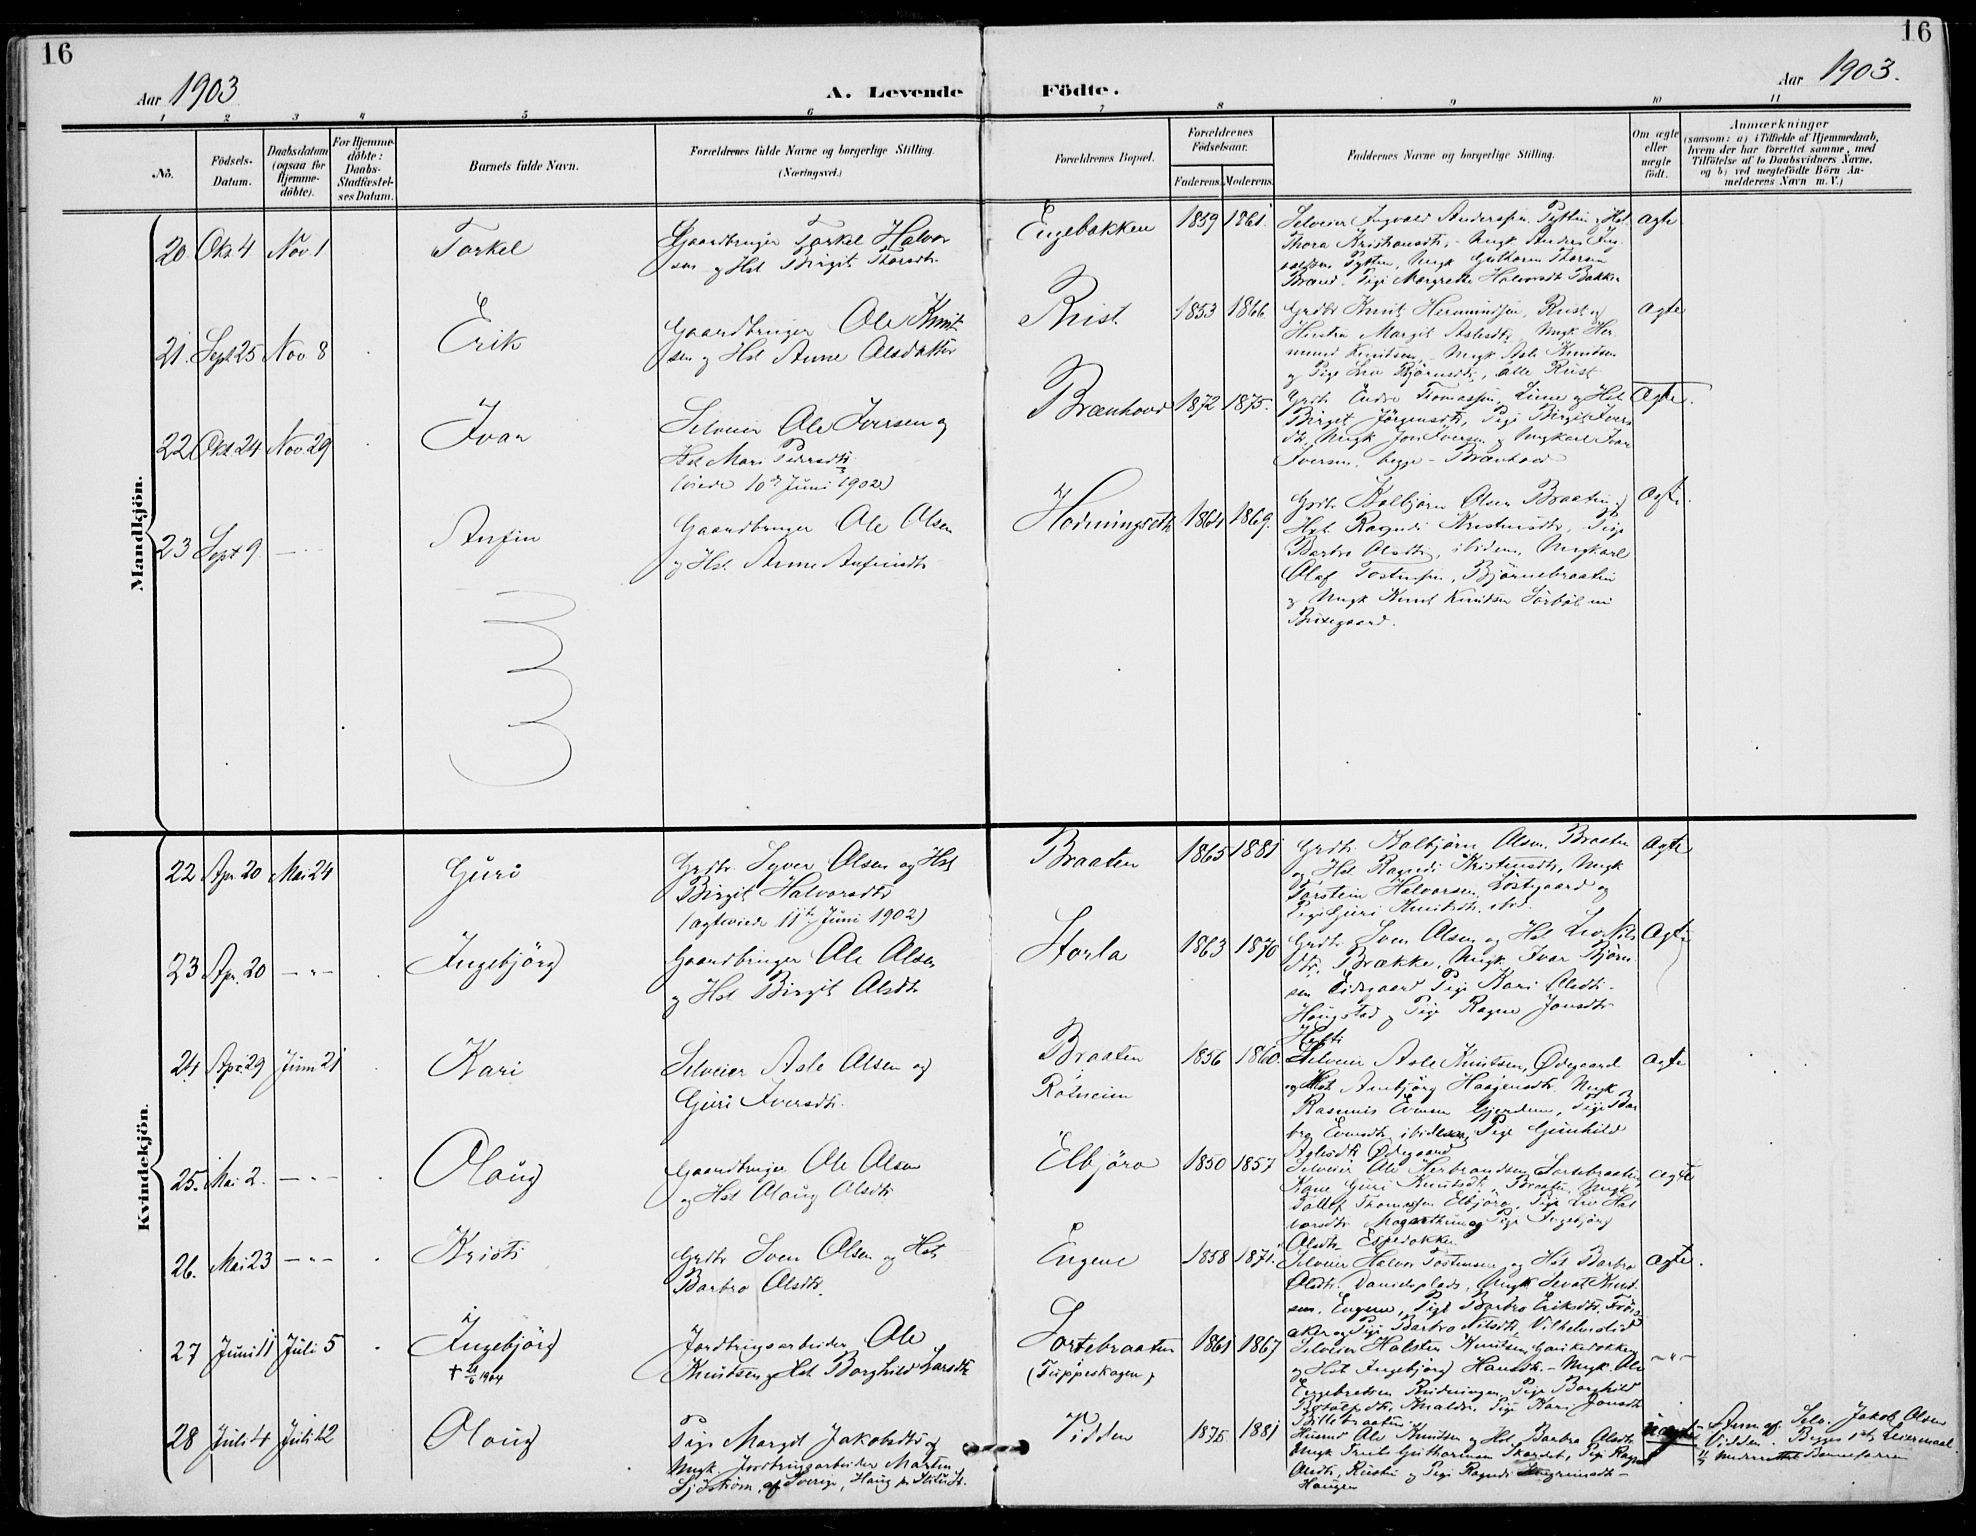 16
16
Aar 1903
A. Levende Födte.
Aar 1903.
1 2 3 4 5 6 7 8 9 10 11
No.
Födsels-Datum.
Daabsdatum (ogsaa for Hjemme-döbte).
For Hjemme-döbte: Daabs-Stadfæstelses Datum.
Barnets fulde Navn.
Forældrenes fulde Navne og borgerlige Stilling.
(Næringsvei.)
Forældrenes Bopæl.
Forældrenes Födselsaar.
Faderens. Moderens.
Faddernes Navne og borgerlige Stilling.
Om ægte eller uægte födt.
Anmærkninger
(saasom: a) i Tilfælde af Hjemmedaab, hvem der har forrettet samme, med Tilföielse af to Daabsvidners Navne, og b) ved uægtefödte Börn Anmelderens Navn m. V.)
Mandkjön.
20 Okt 4 Nov. 1 Torkel
Gaardbruger Torkel Halvor
sen og Hst Birgit Thorsdtr
Engebakken 1859 1861
Selveier Ingvald Anderssen Pytten og Hst
Thora Kristiansdtr, Ungk Anders Ing
valdsen Pytten, Ungk Guttorm Thorsen
Pige Margrethe Halvorsdtr Bakken
ægte
21. Sept 25 Nov. 8 Erik
Gaardbruger Ole Knut
sen og Hst Anne Olsdatter
Rust 1853 1866
Grdbr Knut Hermundsen, Rust og
Hustru Margit Aslesdtr, Ungk Her
mund Knudsen, Ungk Asle Knudsen
og Pige Liv Björnsdtr, alle Rust
ægte
22 Okt 24 Nov. 29 Ivar
Selveier Ole Iversen og
Hst Mari Pedersdtr
(viede 10de Juni 1902)
Brænhovd 1872 1875.
Grdbr Endre Thomassen, Liene og Hst
Birgit Jörgensdtr, Pige Birgit Ivers
dtr, Ungk Jon Iversen og Ungkarl Ivar
Iversen, begge Brænhovd
Ægte.
23 Sept 9 — —
Anfin
Gaardbruger Ole Olsen
og Hst Anne Anfinsdtr
1864 1869.
Grdbr Kolbjörn Olsen Braaten og
Hst Ragndi Kristensdtr, Pige
Barbro Olsdtr, ibidem, Ungkarl
Olaf Tostensen, Björnebraaten
og Ungk Knut Knudsen
ægte.
Kvindekjön.
22 Apr. 20 Mai 24 Guri
Grdbr Syver Olsen og Hst
Birgit Halvorsdtr
(ægteviede 11te Juni 1902)
Braaten 1865 1881
Grdbr. Kolbjörn Olsen Braaten
og Hst Ragndi Kristensdtr, Ungk
Torstein Halvorsen, og
Pige Guri Knutsdtr, ibid.
ægte
23 Apr. 20 — " — Ingebjörg
Gaardbruger Ole Olsen
og Hst Birgit Olsdtr
Storla 1863 1870
Grdbr Sven Olsen og Hst Liv Nils
dtr, Brække, Ungk Ivar Björn
sen Pige Kari Olsdtr
Haugstad og Pige Ragne Jonsdtr
ægte
24 Apr. 29 Juni 21 Kari
Selveier Asle Olsen og
Guri Iversdtr.
Braaten
Rotneim
1856 1860.
Selveier Asle Knudsen, Ødegaard
og Hst Anbjörg Haagensdtr Ungk
Rasmus Evensen Gjerdene, Pige Bar
bro Evensdtr, ibidem, Pige Gunhild
Aslesdtr Ødegaard
ægte
25. Mai 2. — " — Olaug
Gaardbruger Ole Olsen
og Hst Olaug Olsdtr
Elbjöra 1850 1857
Selveier Ole Herbrandsen Sortebraaten
Kone Guri Knutsdtr, Braaten, Ungk
Tollef Thomassen Elbjöra, Pige Liv Hal
vorsdtr og Pige Ingebjörg
Olsdtr Espedokken
ægte
26. Mai 23 — " — Kristi
Grdbr Sven Olsen og Hst
Barbro Olsdtr.
Engene 1858 1871.
Selveier Halvor Tostensen og Hst Barbro
Olsdtr. Danielsplads, Ungk Levat Knut
sen, Engene, Pige Barbro Eriksdtr,
og Pige Barbro Nilsdtr,
ægte.
27 Juni 11 Juli 5 Ingebjörg
† 1904
Jordbrugsarbeider Ole
Knudsen og Hst Borghild Larsdtr
Sortebraaten
(Tuppeskogen)
1861 1867
Selveier Halsten Knutsen,
og Hst Ingebjörg Hansdtr. Ungk. Ole
Engebretsen Pige Borghild
Pige Kari Jonsdtr
— " —
28 Juli 4 Juli 12 Olaug
Pige Margit Jakobsdtr og
Ungk Jordbrugsarbeider Martin
Sjöström, af Sverige,
Vidden 1875 1881
Husmd Ole Knudsen og Hst Barbro Olsdtr,
Ungk Guttormsen Pige Ragne
Olsdtr, og Pige Ragndi
Haugen
uægte
Anm af Selv. Jakob Olsen
Vidden. Begges 1ste Leiermaal
Underrettet Barnefaren